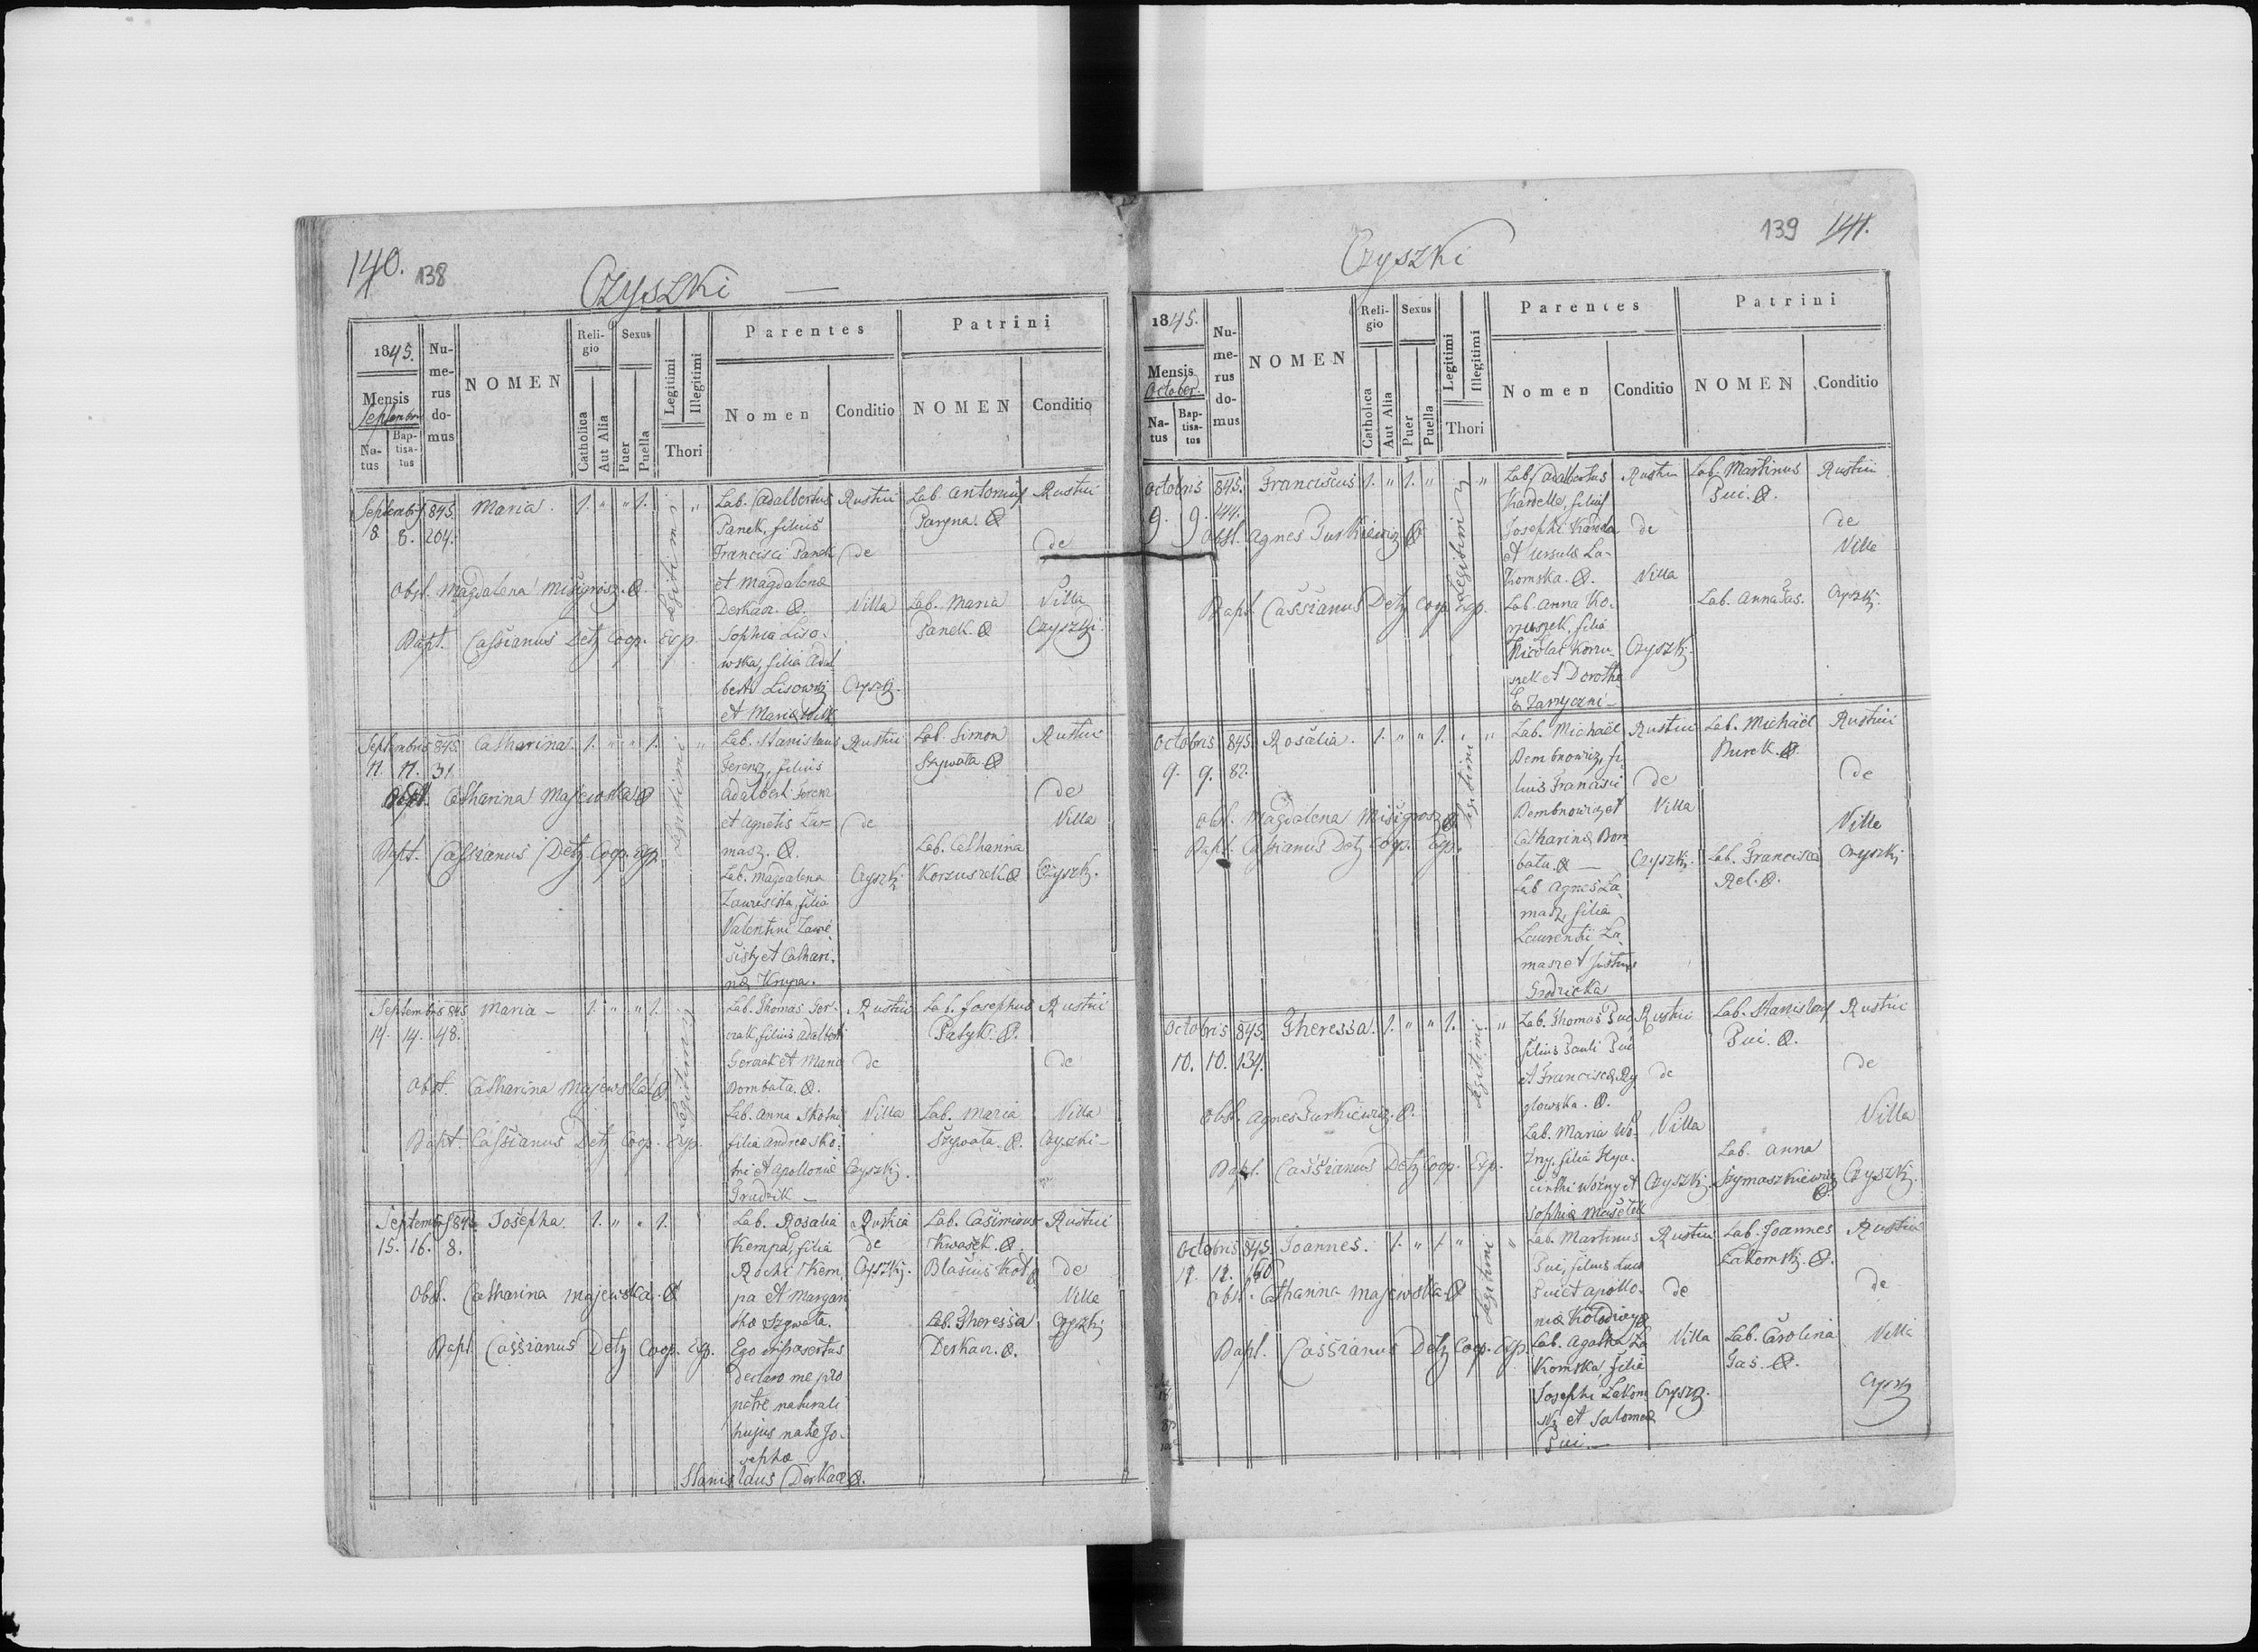 140. 138
Czyszki
1845.
Mensis
Septembris
Na-
tus
Bap-
tisa-
tus
Nu-
me-
rus
do-
mus
NOMEN
Reli-
gio
Catholica
Aut Alia
Sexus
Puer
Puella
Legitimi
Illegitimi
Thori
Parentes
Nomen
Conditio
Patrini
NOMEN
Conditio
Septembris 845. Maria. 1. " " 1. "
8 8. 204.
Legitimi
Obst. Magdalena Misigrosz.
Bapt. Cassianus Detz Coop. Exp.
Lab. Adalbertus
Panek, filius
Francisci Panek
et Magdalena
Derkacz.
Sophia Liso-
wska, filia Adal
berti Lisowski
et Maria Wilk
Rustici
de
Villa
Czyszki.
Lab. Antonius
Lab. Maria
Panek.
Rustici
de
Villa
Czyszki.
Septembris 845. Catharina. 1. " " 1. "
11. 11. 31
Legitimi
Obst. Catharina Majewska
Bapt. Cassianus Detz Coop. Exp.
Lab. Stanislaus
Ferenz, filius
Adalberti Ferenz
et Agnetis Lar-
masz.
Lab. Magdalena
filia
Valentini
et Cathari-
na Krupa.
Rustici
de
Czyszki
Lab. Simon
Szywata.
Lab. Catharina
Korzuszek.
Rustici
de
Villa
Czyszki.
Septembris 845 Maria - 1. " " 1.
14. 14. 48.
Legitimi
Obst. Catharina Majewska
Bapt. Cassianus Detz Coop. Exp.
Lab. Thomas Ger-
czak, filius Adalberti
Gerczak et Maria
Bombata.
Lab. Anna Skotni
filia Andrea Sko-
tni et Apollonia
Grudzik -
Rustici
de
Villa
Czyszki.
Lab. Josephus
Patyk.
Lab. Maria
Szywata.
Rustici
de
Villa
Czyszki -
Septembris 845 Josepha. 1. " " 1.
15. 16. 8.
Obst. Catharina Majewska.
Bapt. Cassianus Detz Coop. Exp.
Lab. Rosalia
Kempa, filia
Rochi Kem-
pa et Margari
tha Szywata.
Ego infrasertus
declaro me pro
patre naturali
hujus nate Jo-
sepha
Stanislaus Derkacz.
Rustica
de
Czyszki.
Lab. Casimirus
Kwasek.
Blasius
Lab. Theressa
Derkacz.
Rustici
de
Villa
Czyszki
Czyszki
139 141.
1845.
Mensis
October.
Na-
tus
Bap-
tisa-
tus
Nu-
me-
rus
do-
mus
NOMEN
Reli-
gio
Catholica
Aut Alia
Sexus
Puer
Puella
Legitimi
Illegitimi
Thori
Parentes
Nomen
Conditio
Patrini
NOMEN
Conditio
Octobris 845. Franciscus 1. " 1. " "
9. 9. 144.
Legitimi
Obst. Agnes Turkiewicz
Bapt. Cassianus Detz Coop. Exp.
Lab. Adalbertus
Kardella, filius
Josephi Kardela
et Ursula La-
komska.
Lab. Anna Ko-
rzuszek, filia
Nicolai Korzu-
szek et Dorothe
Rustici
de
Villa
Czyszki.
Lab. Martinus
Pui.
Lab. Anna Gas.
Rustici
de
Villa
Czyszki.
Octobris 845. Rosalia. 1. " " 1. "
9. 9. 82.
Legitimi
Obst. Magdalena Misigrosz
Bapt. Cassianus Detz Coop. Exp.
Lab. Michaël
Dembnowicz, fi-
lius Francisci
Dembnowicz et
Catharina Bom
bata. -
Lab Agnes La-
masz, filia
Laurentii La-
masz et
Grodzicka
Rustici
de
Villa
Czyszki.
Lab. Michaël
Burek.
Lab. Francisca
Rel.
Rustici
de
Villa
Czyszki
Octobris 845. Theressa. 1. " " 1. "
10. 10. 134.
Legitimi
Obst. Agnes Turkiewicz.
Bapt. Cassianus Detz Coop. Exp.
Lab. Thomas Pui
filius Pauli Pui
et Francisca Ry
glowska.
Lab. Maria Wo-
zny, filia Hya-
cinthi Wozny et
Sophia Masetek
Rustici
de
Villa
Czyszki.
Lab. Stanislaus
Pui.
Lab. Anna
Szymaszkiewicz
Rustici
de
Villa
Czyszki.
Octobris 845. Joannes. 1. " 1. " "
12. 12. 160
Legitimi
Obst. Catharina Majewska.
Bapt. Cassianus Detz Coop. Exp.
Lab. Martinus
Pui, filius Luca
Pui et Apollo-
nia
Lab. Agatha La
komska, filia
Josephi Lakom
ski et Salomea
Pui. -
Rustici
de
Villa
Czyszki.
Lab. Joannes
Lakomski.
Lab. Carolina
Gas.
Rustici
de
Villa
Czyszki